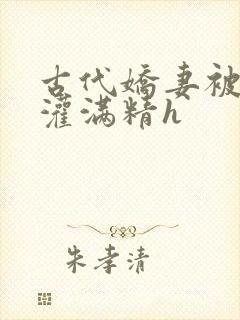 古代娇妻被
灌满精h
朱孝清